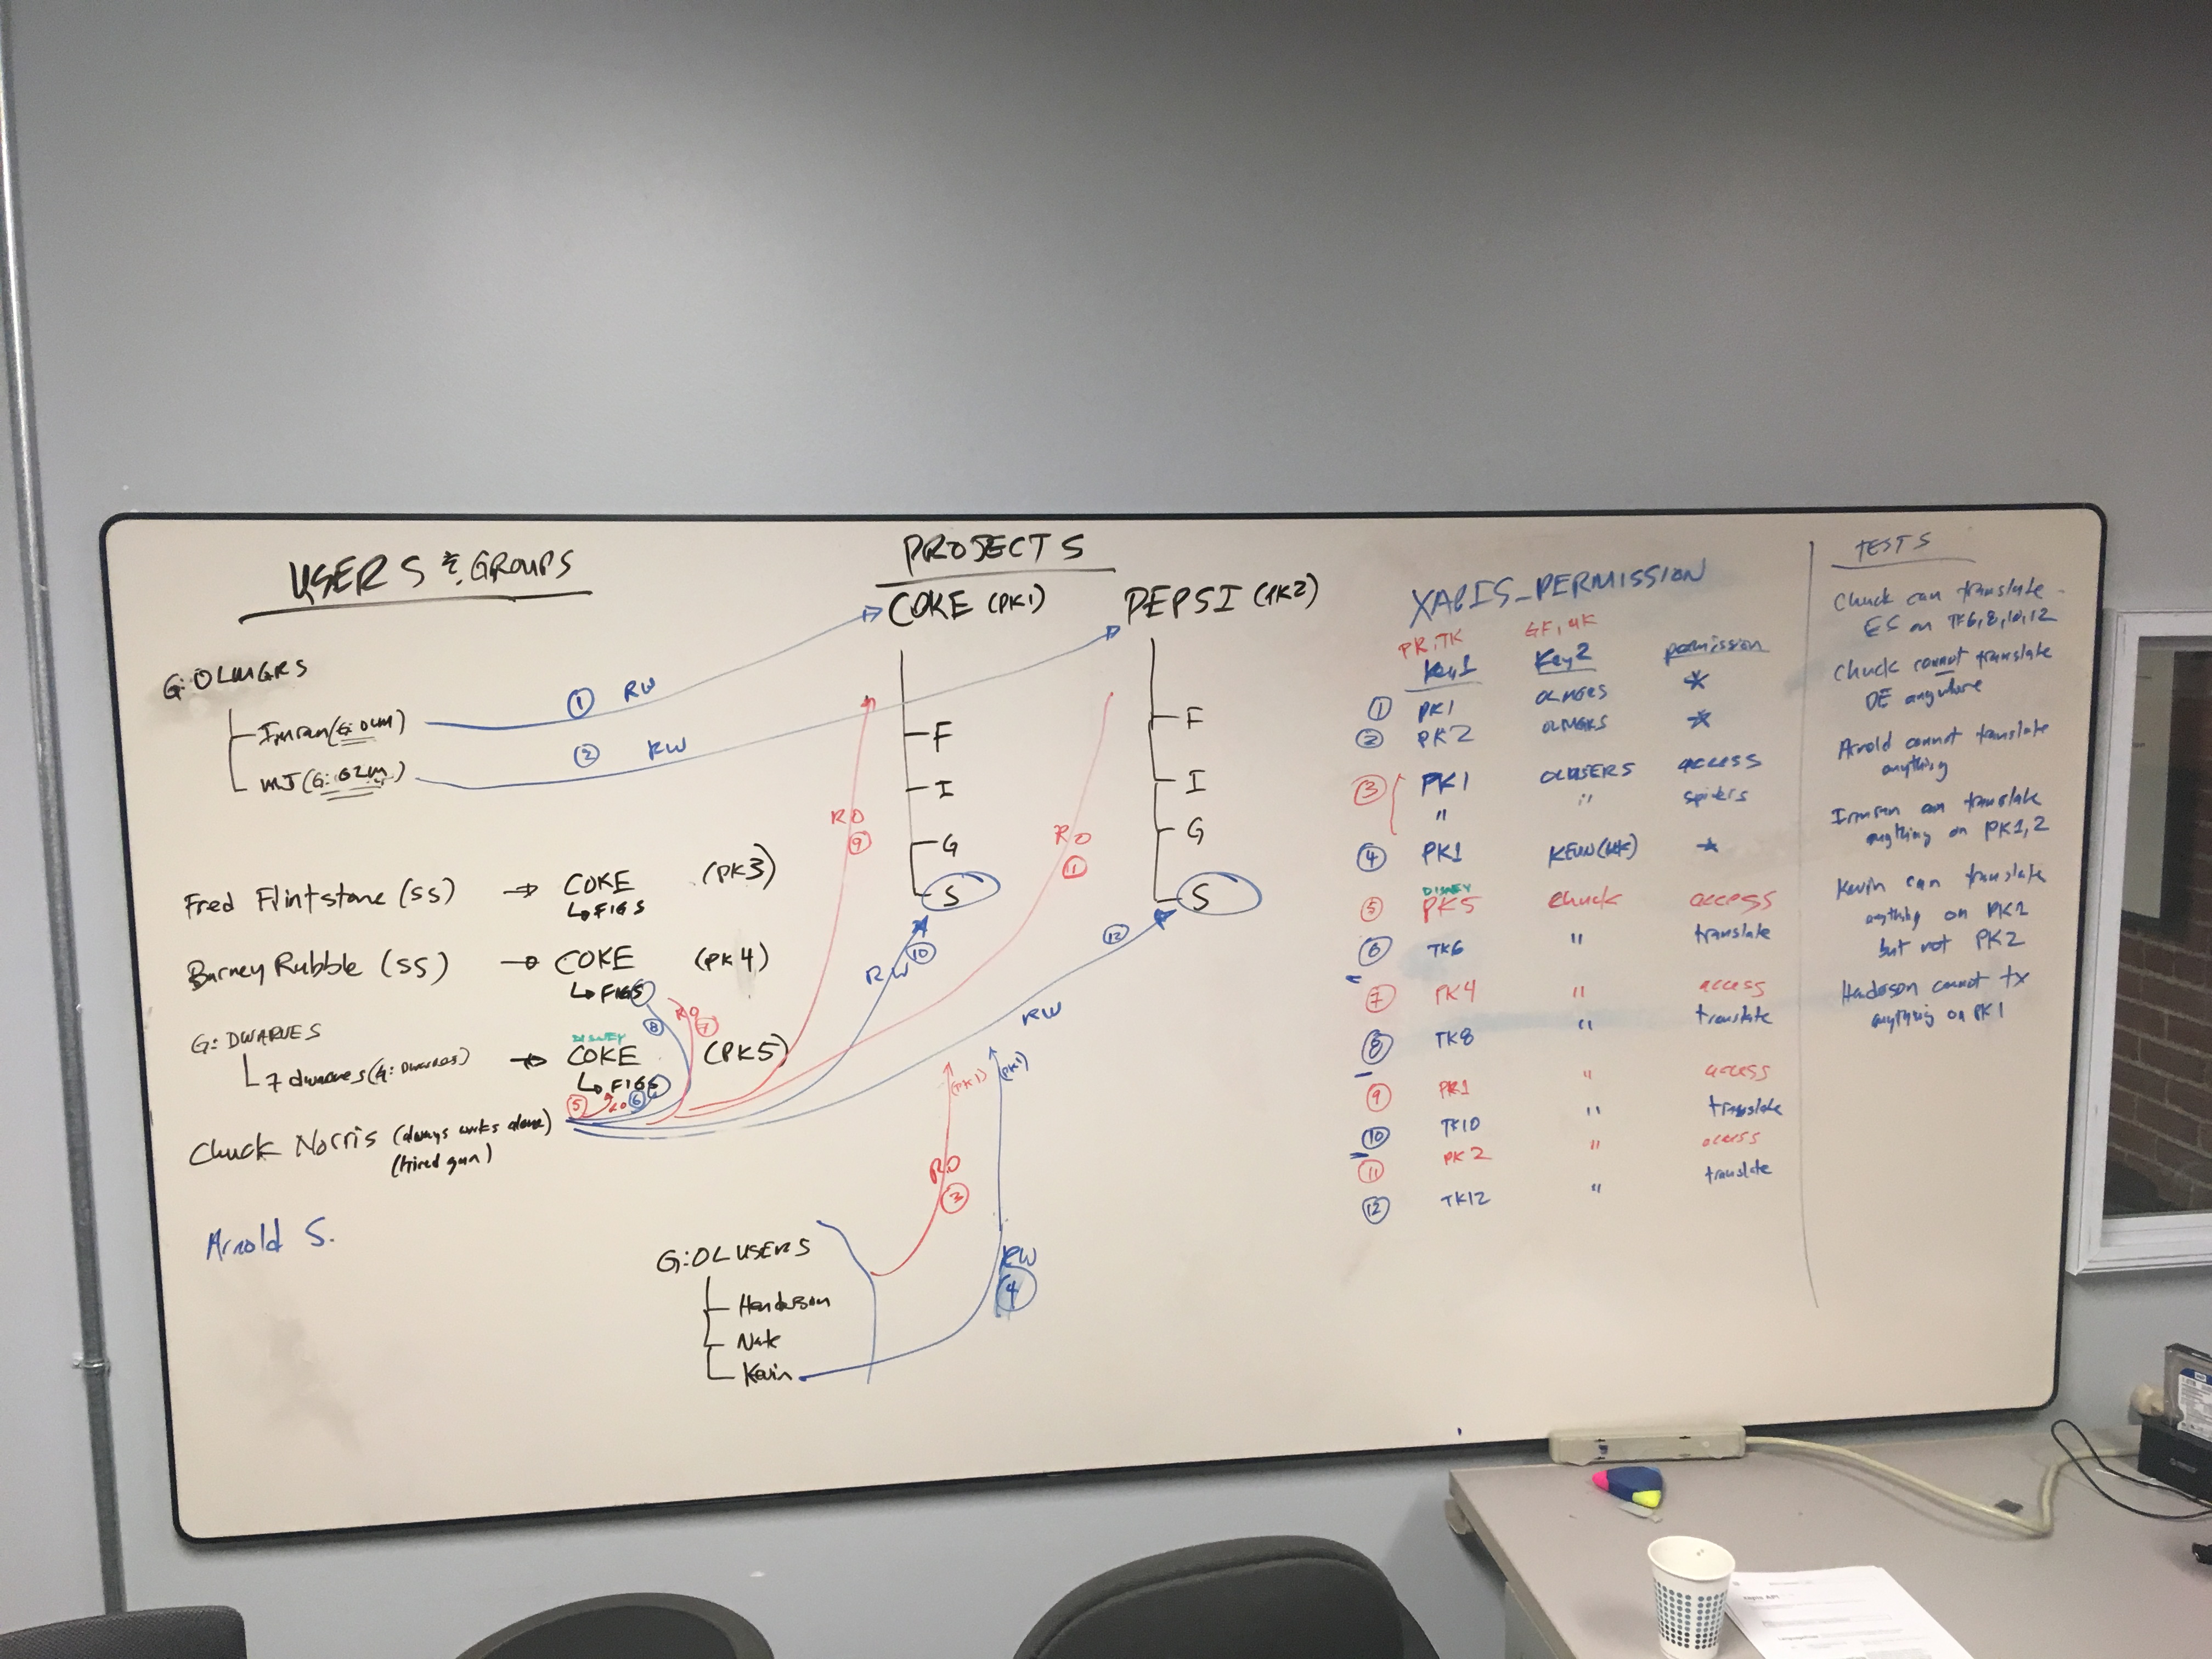 USERS & GROUPS
G: OLMGRS
Imran (G: OLM)
MJ (G: OLM)
① RW
② RW
Fred Flintstone (SS) → COKE (PK3)
↳ FIGS
Barney Rubble (SS) → COKE (PK4)
↳ FIGS
RO ⑦
⑧
G: DWARVES
7 dwarves (G: Dwarves) → COKE (PK5)
DISNEY
↳ FIGS
⑤ RO ⑥
Chuck Norris (always works alone)
(hired gun)
Arnold S.
G: OL USERS
Henderson
Nate
Kevin
RO
③
(PK1)
RW
④
(PK1)
PROJECTS
COKE (PK1)
F
I
G
S
RO
⑨
RW ⑩
PEPSI (PK2)
F
I
G
S
RO
⑪
⑫
RW
XABIS_PERMISSION
PK, TK
GK, UK
Key1 Key2 permission
① PK1 OLMGRS *
② PK2 OLMGRS *
③ PK1 OLUSERS access
" " spiders
④ PK1 KEVIN (UK) *
DISNEY
⑤ PK5 chuck access
⑥ TK6 " translate
⑦ PK4 " access
⑧ TK8 " translate
⑨ PK1 " access
⑩ TK10 " translate
⑪ PK2 " access
⑫ TK12 " translate
TESTS
Chuck can translate
ES on TK6,8,10,12
Chuck cannot translate
DE anywhere
Arnold cannot translate
anything
Imran can translate
anything on PK1,2
Kevin can translate
anything on PK1
but not PK2
Henderson cannot tx
anything on PK1